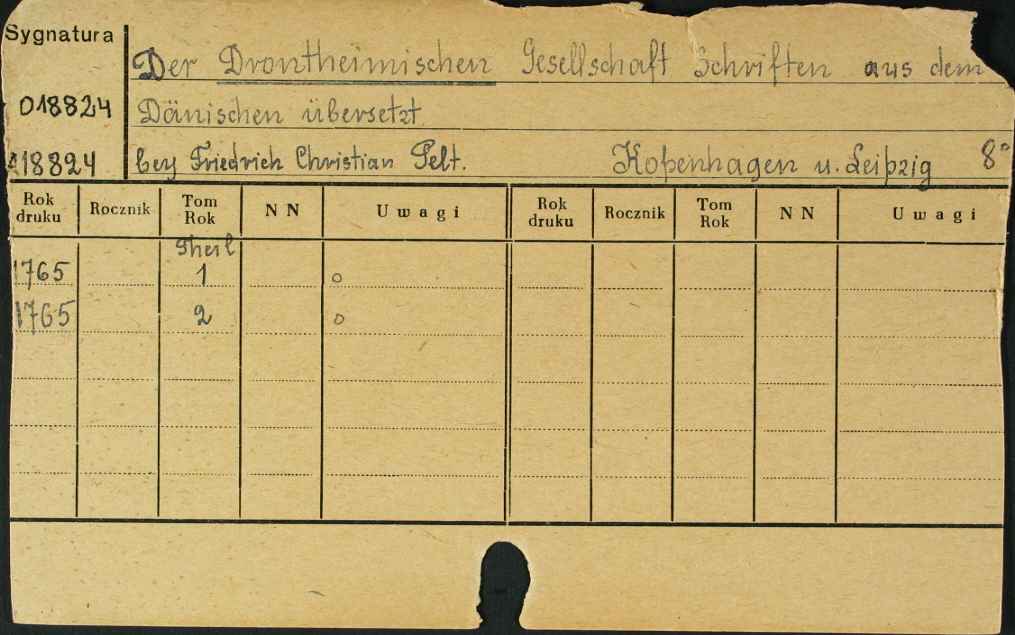 Sygnatura
Der Drontheimischen Gesellschaft Schriften aus dem
018824
Dänischen übersetzt
118824
bey Friedrich Christian Pelt. Kopenhagen u. Leipzig 8°
Rok druku Rocznik Tom Rok NN Uwagi Rok druku Rocznik Tom Rok NN Uwagi
Theil
1765 1 o
1765 2 o